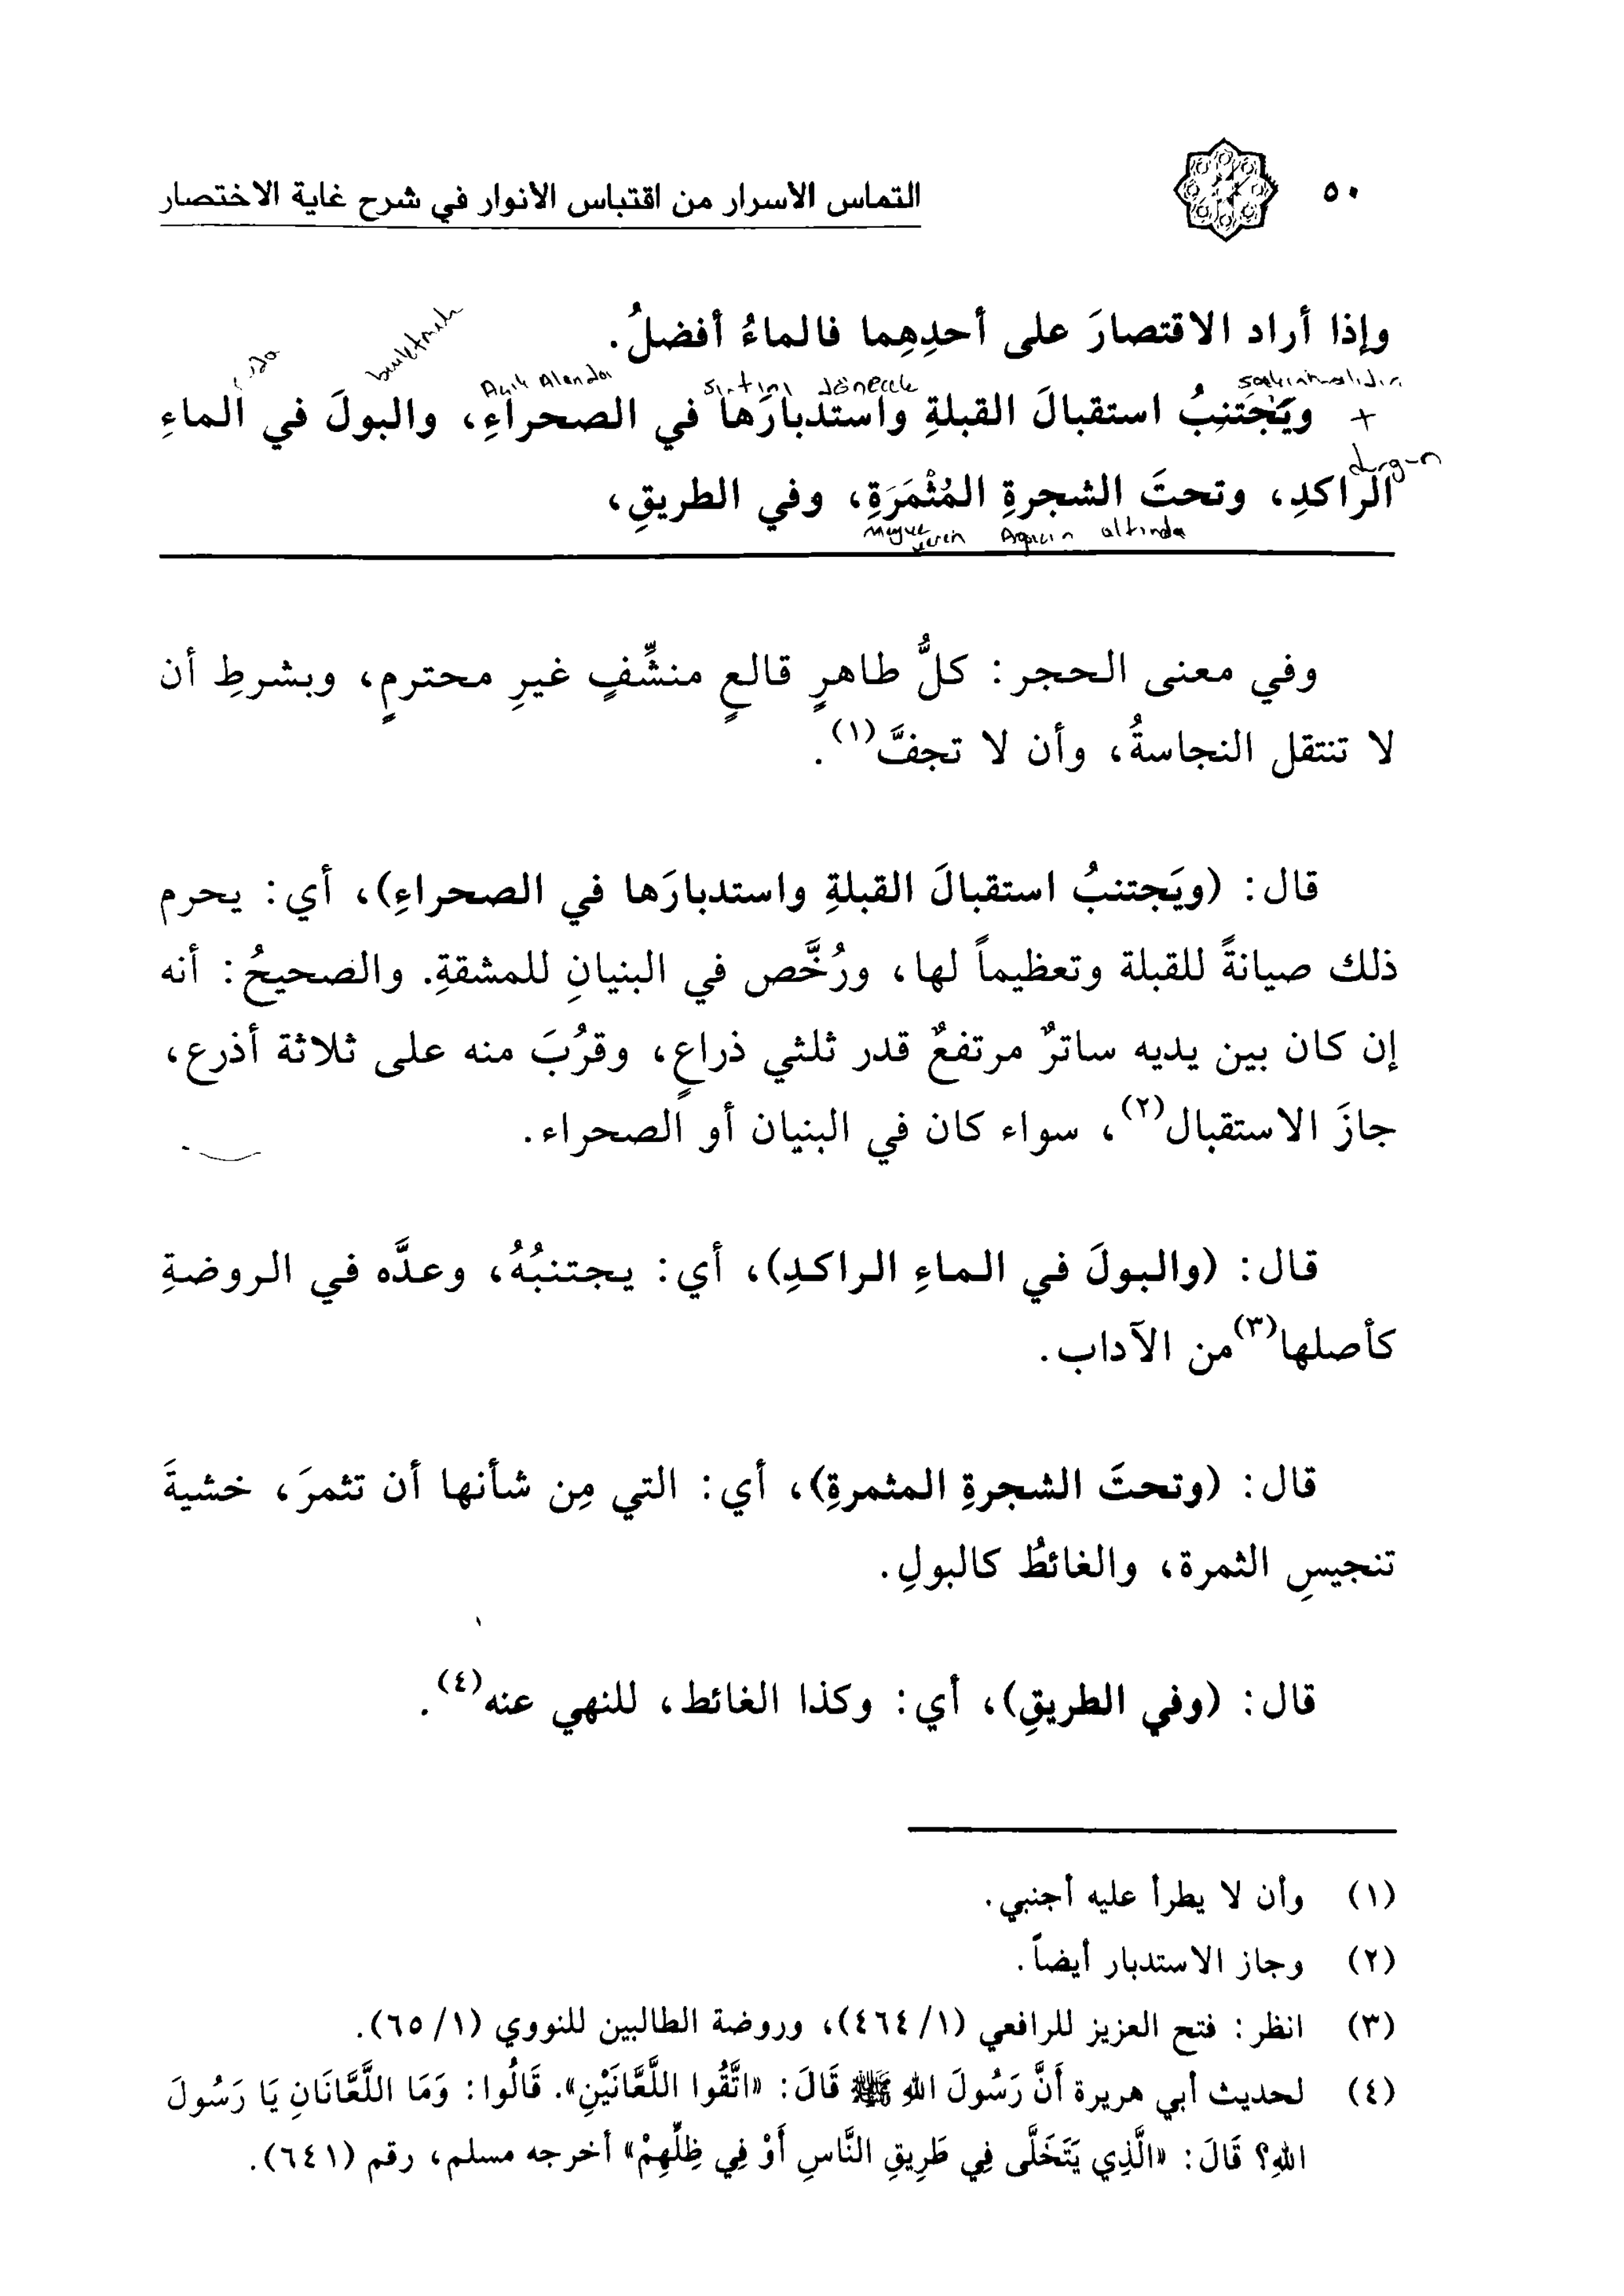 ٥٠
التماس الأسرار من اقتباس الأنوار في شرح غاية الاختصار
وإذا أراد الاقتصارَ على أحدِهِما فالماءُ أفضلُ.
Açık Alanda sırtını dönecek sakınmalıdır
+ ويَجْتَنِبُ استقبالَ القبلةِ واستدبارَها في الصحراءِ، والبولَ في الماءِ
durgun
الراكدِ، وتحتَ الشجرةِ المُثْمَرَةِ، وفي الطريقِ،
meyve veren Ağacın altında
وفي معنى الحجر: كلُّ طاهرٍ قالعٍ منشِّفٍ غيرِ محترمٍ، وبشرطِ أن
لا تنتقل النجاسةُ، وأن لا تجفَّ(١).
قال: (ويَجتنبُ استقبالَ القبلةِ واستدبارَها في الصحراءِ)، أي: يحرم
ذلك صيانةً للقبلة وتعظيماً لها، ورُخَّص في البنيانِ للمشقةِ. والصحيحُ: أنه
إن كان بين يديه ساترٌ مرتفعٌ قدر ثلثي ذراعٍ، وقرُبَ منه على ثلاثة أذرع،
جازَ الاستقبال(٢)، سواء كان في البنيان أو الصحراء.
قال: (والبولَ في الماءِ الراكدِ)، أي: يجتنبُهُ، وعدَّه في الروضةِ
كأصلها(٣) من الآداب.
قال: (وتحتَ الشجرةِ المثمرةِ)، أي: التي مِن شأنها أن تثمرَ، خشيةَ
تنجيسِ الثمرة، والغائطُ كالبولِ.
قال: (وفي الطريقِ)، أي: وكذا الغائط، للنهي عنه(٤).
(١) وأن لا يطرأ عليه أجنبي.
(٢) وجاز الاستدبار أيضاً.
(٣) انظر: فتح العزيز للرافعي (١/ ٤٦٤)، وروضة الطالبين للنووي (١/ ٦٥).
(٤) لحديث أبي هريرة أَنَّ رَسُولَ اللهِ ﷺ قَالَ: «اتَّقُوا اللَّعَّانَيْنِ». قَالُوا: وَمَا اللَّعَّانَانِ يَا رَسُولَ
اللهِ؟ قَالَ: «الَّذِي يَتَخَلَّى فِي طَرِيقِ النَّاسِ أَوْ فِي ظِلِّهِمْ» أخرجه مسلم، رقم (٦٤١).